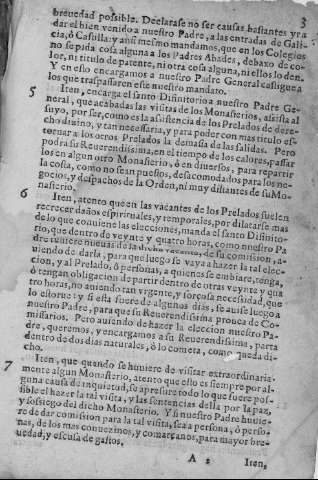 3
breuedad possible. Declarase no ser causas bastantes yra
dar el bien venido a nuestro Padre, a las entradas de Gali-
cia, ò Castilla: y ansi mesmo mandamos, que en los Colegios
no se pida cosa alguna a los Padres Abades, debaxo de co-
lor, ni titulo de patente, ni otra cosa alguna, ni ellos lo den.
Y en esso encargamos a nuestro Padre General castigue a
los que traspassaren este nuestro mandato.
5 Iten, encarga el santo Difinitorio a nuestro Padre Ge-
neral, que acabadas las visitas de los Monasterios, assista al
suyo, por ser, como es la assistencia de los Prelados de dere-
cho diuino, y tan necessaria, y para poder con mas titulo es-
toruar a los otros Prelados la demasia de las salidas. Pero
podra su Reuerendissima, en el tiempo de los calores, passar
los en algun otro Monasterio, ò en diuersos, para repartir
la costa, como no sean puestos, desacomodados para los ne-
gocios, y despachos de la Orden, ni muy distantes de su Mo-
nasterio.
6 Iten, atento que en las vacantes de los Prelados suelen
recrecer daños espirituales, y temporales, por dilatarse mas
de lo que conuiene las elecciones, manda el santo Difinito-
rio, que dentro de veynte y quatro horas, como nuestro Pa
dre tuuiere nueuas de la dicha de su comission, a-
uiendo de darla, para que luego se vaya a hazer la tal elec-
cion, y al Prelado, ò personas, a quienes se embiare, tenga,
ò tengan obligacion de partir dentro de otras veynte y qua
tro horas, no auiendo tan vrgente, y forçosa necessidad, que
lo estorue: y si esta fuere de algunos dias, se auise luego a
nuestro Padre, para que su Reuerendissima prouea de Co-
missarios. Pero auiendo de hazer la eleccion nuestro Pa-
dre, queremos, y encargamos a su Reuerendissima, parta
dentro de dos dias naturales, ò lo cometa, como queda di-
cho.
7 Iten, que quando se huuiere de visitar extraordinaria-
mente algun Monasterio, atento que esto es siempre por al-
guna causa de inquietud, se apresure todo lo que fuere pos-
sible el hazer la tal visita, y las sentencias della por la paz,
y sossiego del dicho Monasterio. Y si nuestro Padre huuie-
re de dar comission para la tal visita, sea a persona, ò perso-
nas, de los mas conuezinos, y comarcanos, para mayor bre-
uedad, y escusa de gastos.
A 2 Iten,